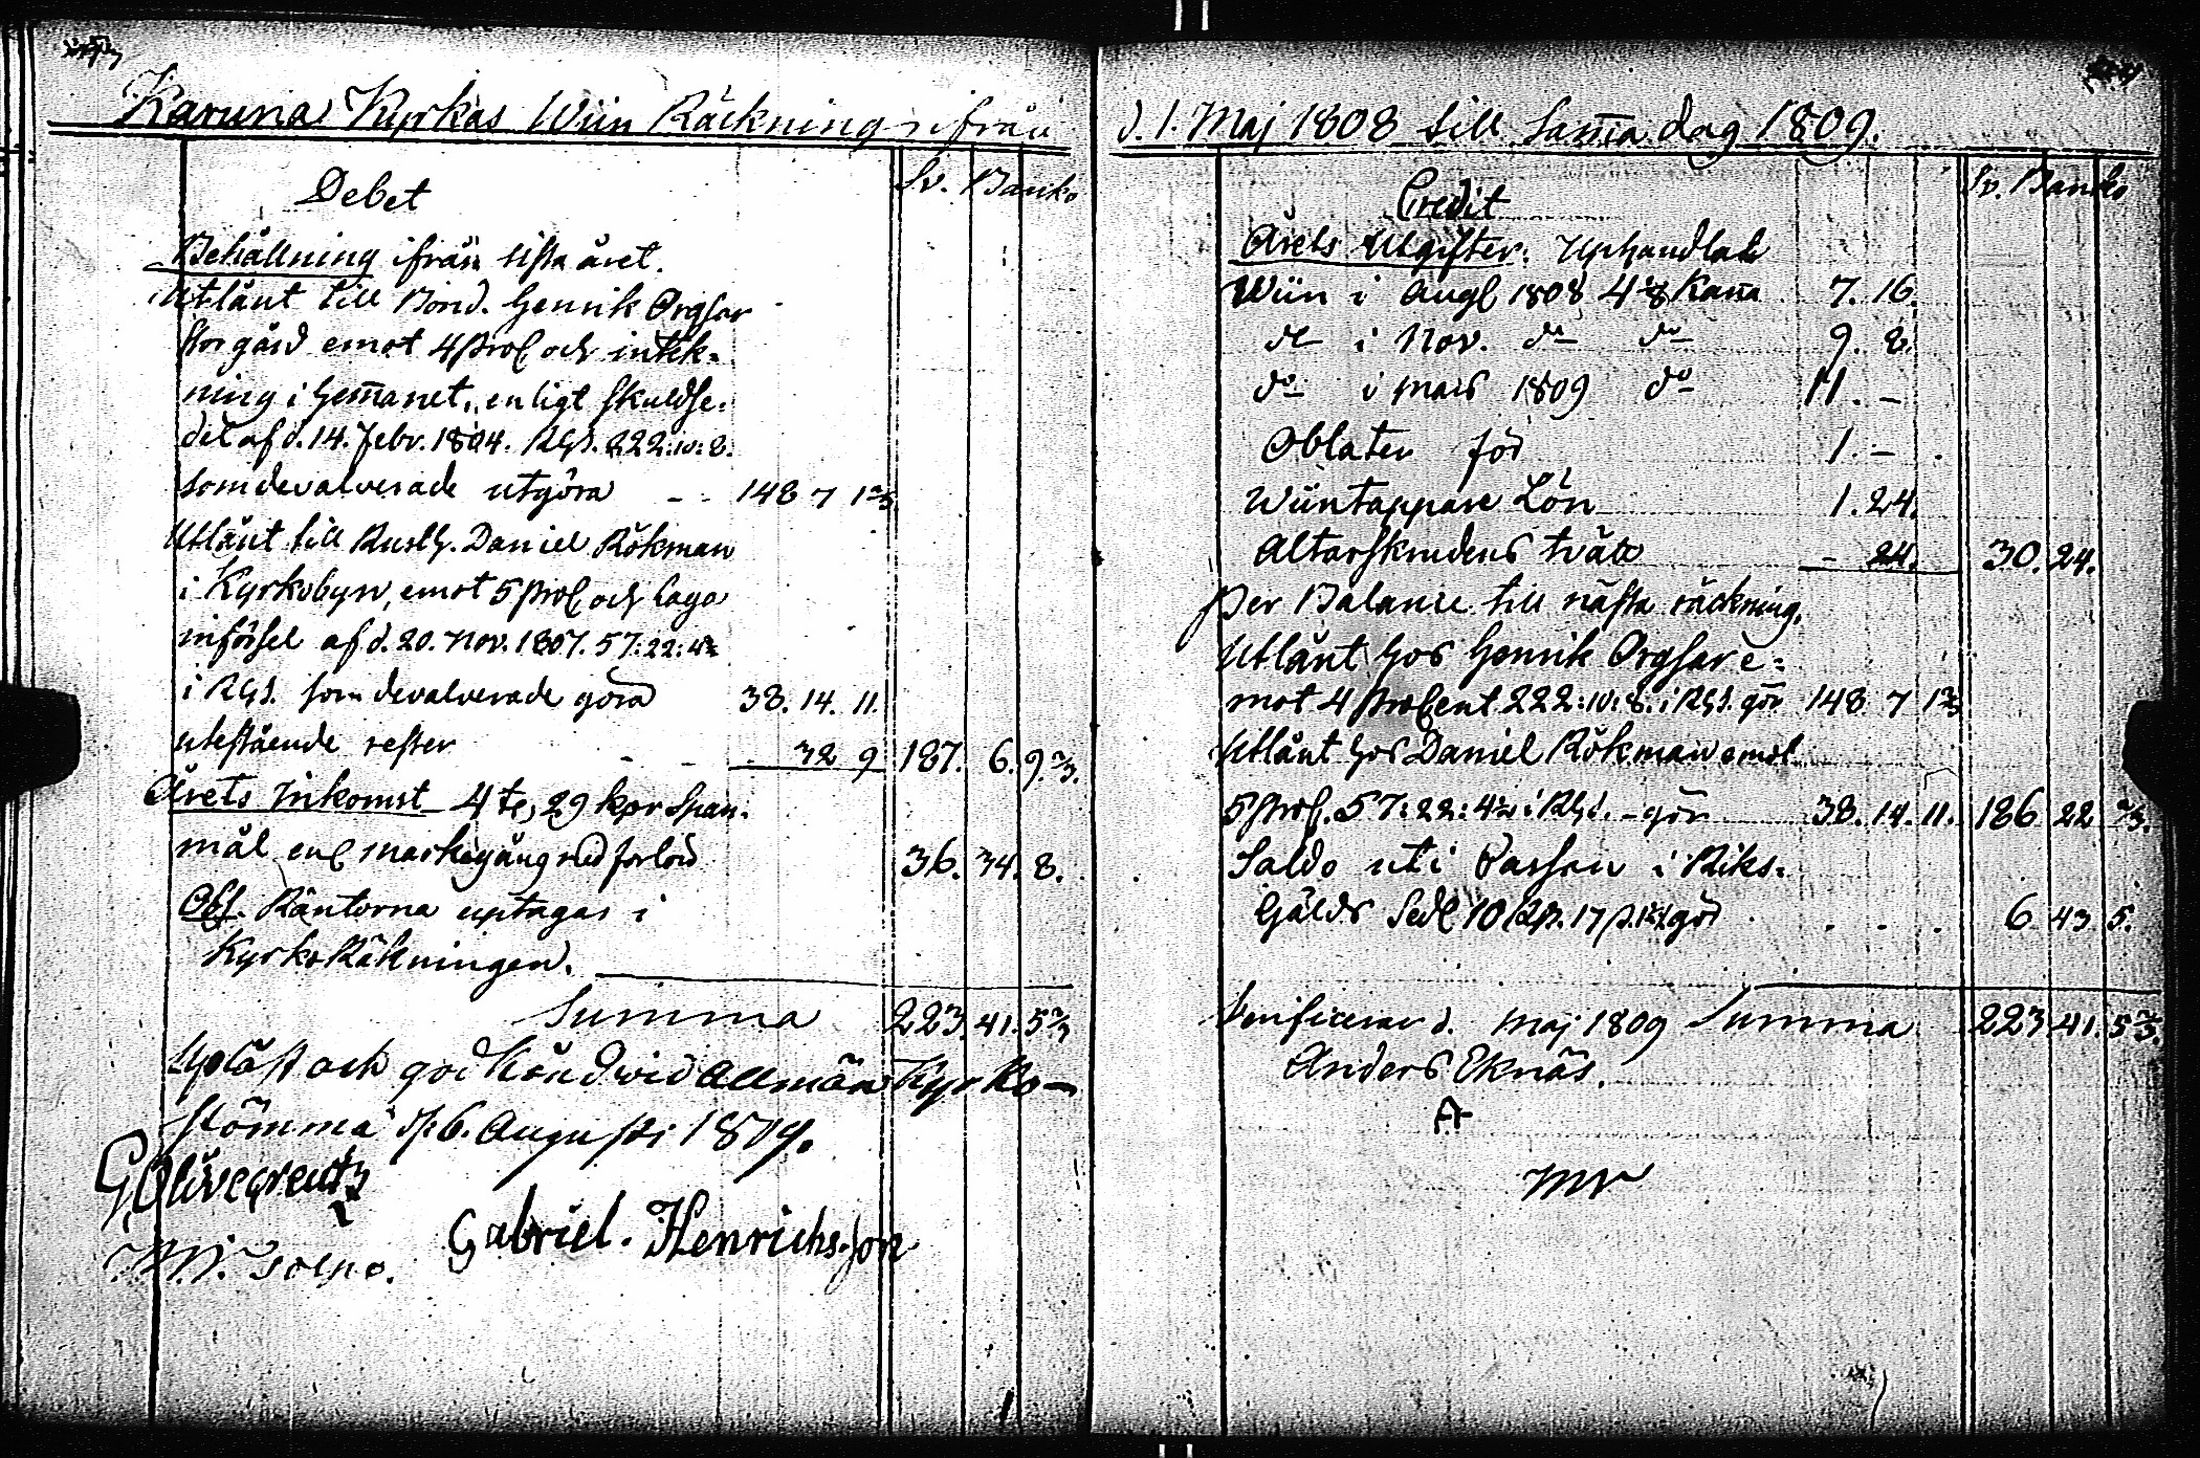 Karuna Kyrkas Wiin Räckning ifrån
Debet
Sv. Banko
Behållning ifrån sista året.
Utlånt till Bond. Henrik Orgsar
Storgård emot 4 proC och intek-
ning i Hem̄anet, enligt skuldse-
del af d. 14. Febr. 1804. RGs. 222:10:8.
som devalverade utgöra - - 148 7 1 2/3
Utlånt till Rusth. Daniel Rökman
i Kyrkobyn, emot 5 proC och laga
införsel af d. 20. Nov. 1807. 57:22:4½
i RGs. som devalverade göra 38. 14. 11.
utestående rester - - 32 9 187. 6. 9 2/3.
Årets Inkomst 4 t., 29 kpr Span-
mål enl markegång med förlöd 36. 34. 8.
Obs. Räntorna uptagas i
KyrkoRäkningen.
Summa 223. 41. 5 2/3
Upläst och godkänd vid Allmän Kyrko-
stämma d. 6. Augusti 1809.
G Olivecreutz
Gabriel. Henrichsson
d. 1. Maj 1808 till Sam̄a dag 1809.
Credit
Sv. Banko
Årets Utgifter. Uphandlat
Wiin i Aug 1808 4 1/8 Kan̄a 7. 16.
do i Nov. do do 9. 8.
do i Mars 1809 do 11. -
Oblater för 1. -
Wiintappare Lön 1. 24.
Altarskrudens tvätt - 24. 30. 24.
Per Balance till nästa räckning.
Utlånt hos Henrik Orgsar e-
mot 4 proCent 222:10:8. i RGs. gör 148 7 1 2/3
Utlånt hos Daniel Rökman emot
5 proC. 57:22:4½ i RGs. - gör 38. 14. 11. 186 22 2/3.
Saldo uti Cassan i Riks-
Gälds Sedl 10 Rdr. 17 s. gör . . . 6 43 5.
Verificerar d. Maj 1809 Summa 223 41. 5 2/3.
Anders Eknäs.
A